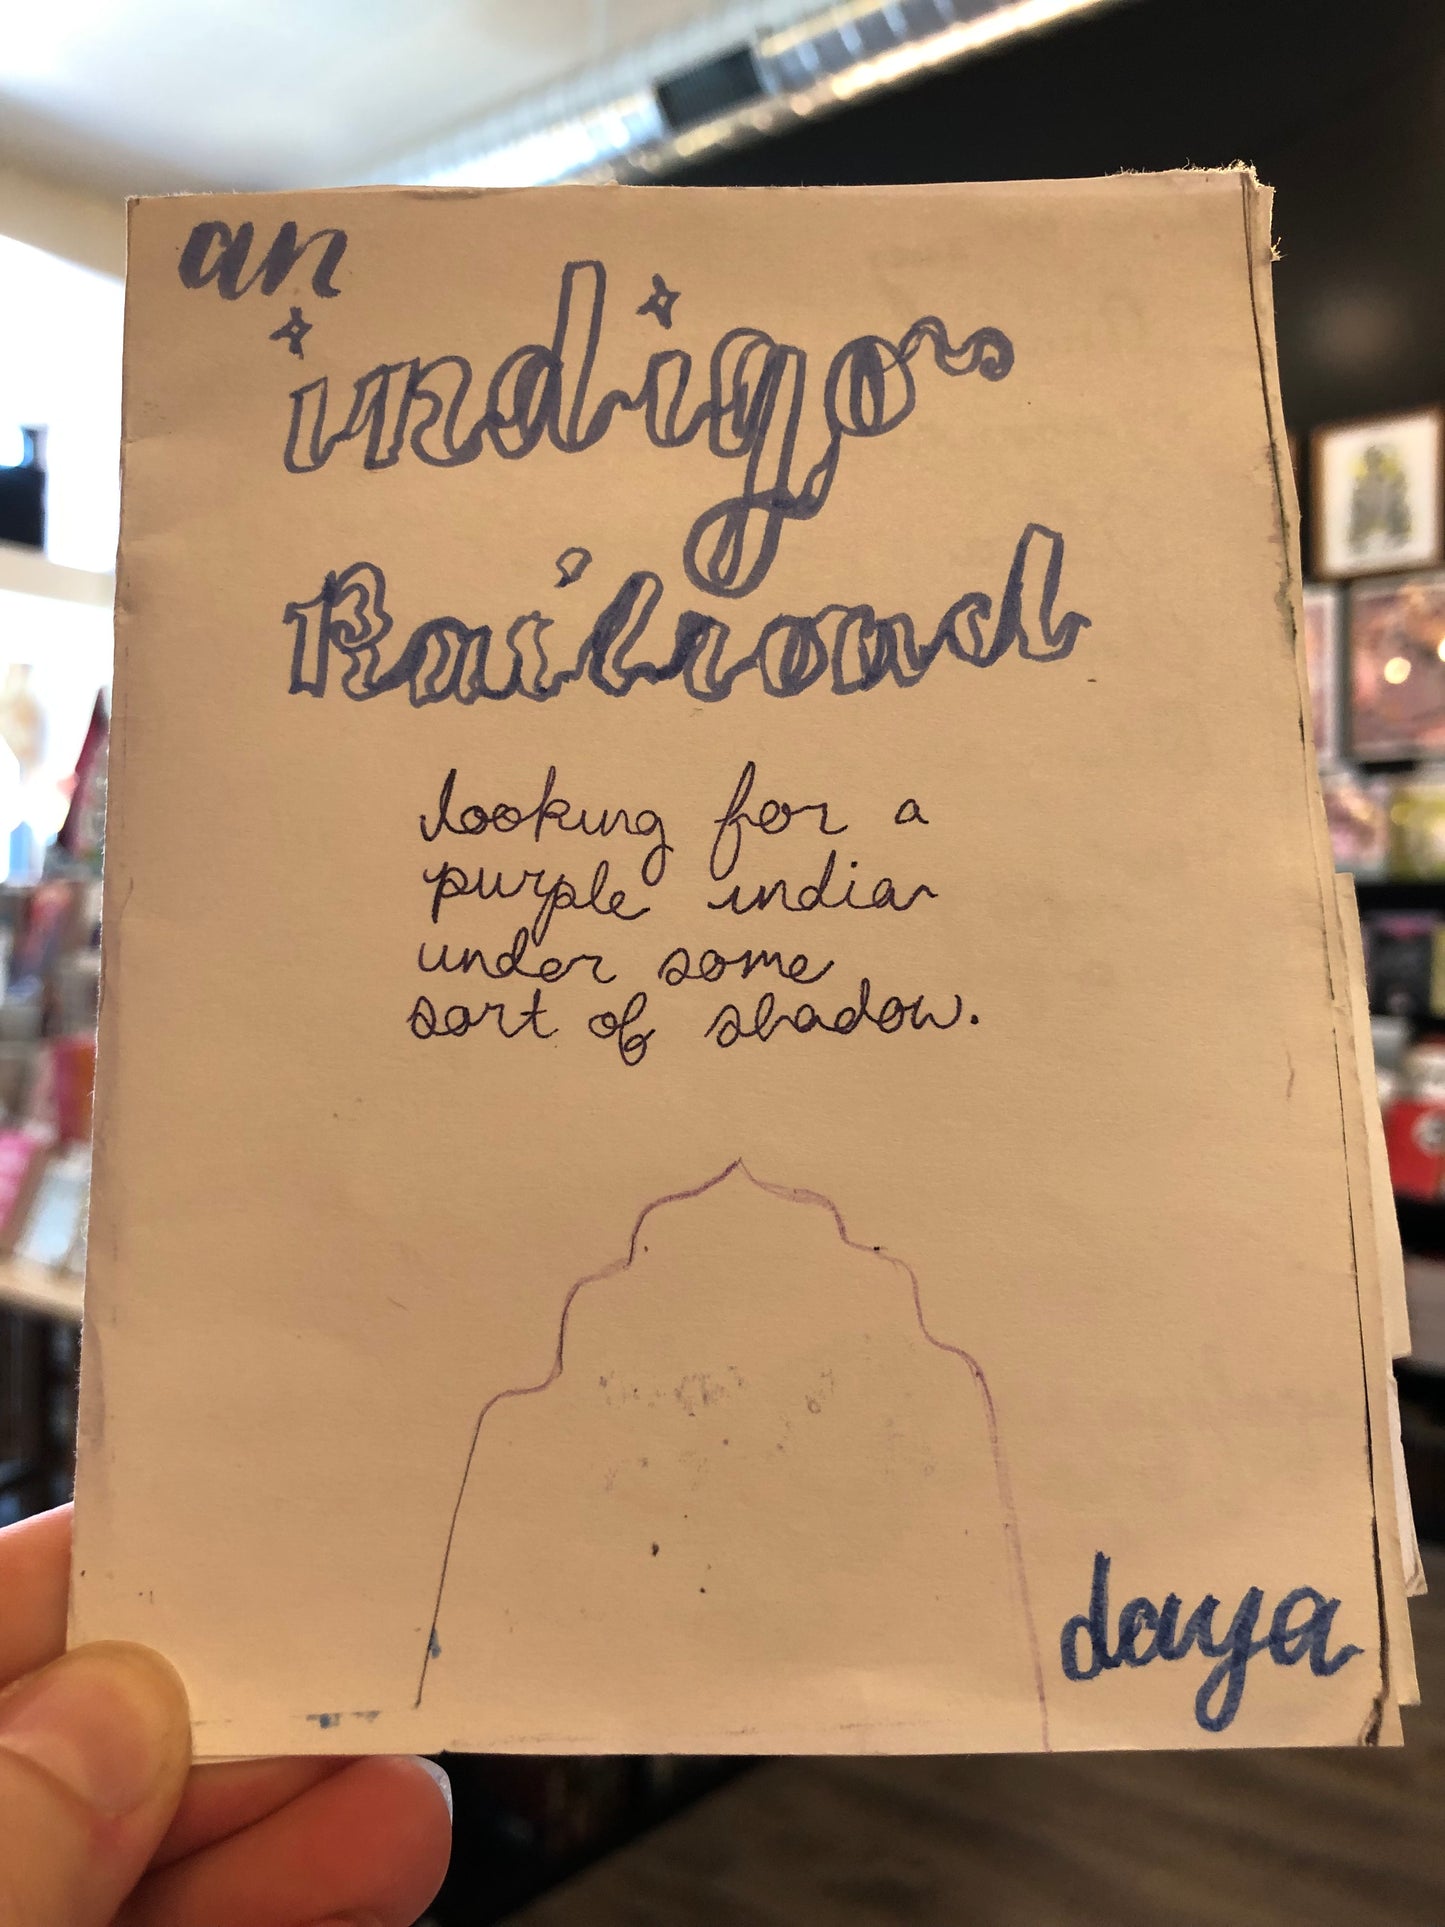 an
indigo
Railroad
looking for a
purple india
under some
sort of shadow.
daya